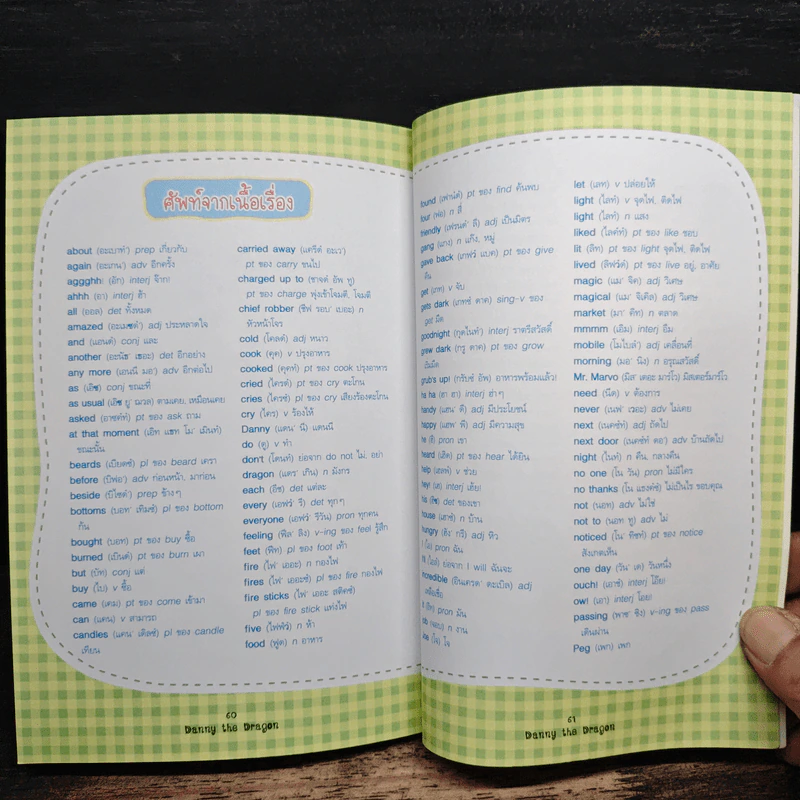 ศัพท์จากเนื้อเรื่อง
about (อะเบาท์) prep เกี่ยวกับ
again (อะเกน) adv อีกครั้ง
aggghh (อ๊าก) interj จ๊าก!
ahhh (อา) interj อ้า
all (ออล) det ทั้งหมด
amazed (อะเมซด์) adj ประหลาดใจ
and (แอนด์) conj และ
another (อะนัธ เธอะ) det อีกอย่าง
any more (เอนนี มอ) adv อีกต่อไป
as (เอ็ซ) conj ขณะที่
as usual (เอ็ซ ยู ฌวล) ตามเคย, เหมือนเคย
asked (อาซคท์) pt ของ ask ถาม
at that moment (เอ็ท แธท โม เม็นท์)
ขณะนั้น
beards (เบียดซ์) pl ของ beard เครา
before (บิฟอ) adv ก่อนหน้า, มาก่อน
beside (บิไซด์) prep ข้างๆ
bottoms (บอท เทิมซ์) pl ของ bottom
ก้น
bought (บอท) pt ของ buy ซื้อ
burned (เบินด์) pt ของ burn เผา
but (บัท) conj แต่
buy (ไบ) v ซื้อ
came (เคม) pt ของ come เข้ามา
can (แคน) v สามารถ
candies (แคน เดิลซ์) pl ของ candle
เทียน
carried away (แครีด์ อะเว)
pt ของ carry ขนไป
charged up to (ชาจด์ อัพ ทู)
pt ของ charge พุ่งเข้าโจมตี, โจมตี
chief robber (ชีฟ รอบ เบอะ) n
หัวหน้าโจร
cold (โคลด์) adj หนาว
cook (คุค) v ปรุงอาหาร
cooked (คุคท์) pt ของ cook ปรุงอาหาร
cried (ไครด์) pt ของ cry ตะโกน
cries (ไครซ์) pl ของ cry เสียงร้องตะโกน
cry (ไคร) v ร้องไห้
Danny (แดน นี) แดนนี
do (ดู) v ทำ
don't (โดนท์) ย่อจาก do not ไม่, อย่า
dragon (แดร เกิน) n มังกร
each (อีช) det แต่ละ
every (เอฟว์ รี) det ทุกๆ
everyone (เอฟว์ รีวัน) pron ทุกคน
feeling (ฟีล ลิง) v-ing ของ feel รู้สึก
feet (ฟีท) pl ของ foot เท้า
fire (ไฟ เออะ) n กองไฟ
fires (ไฟ เออะซ์) pl ของ fire กองไฟ
fire sticks (ไฟ เออะ สติคซ์)
pl ของ fire stick แท่งไฟ
five (ไฟฟ์ว) n ห้า
food (ฟูด) n อาหาร
60
Danny the Dragon
ound (เฟานด์) pt ของ find ค้นพบ
four (ฟอ) n สี่
friendly (เฟรนด์ ลี) adj เป็นมิตร
gang (แกง) n แก๊ง, หมู่
gave back (เกฟว์ แบค) pt ของ give
คืน
get (เกท) v จับ
gets dark (เกทซ์ ดาค) sing-v ของ
get มืด
goodnight (กุดไนท์) interj ราตรีสวัสดิ์
grew dark (กรู ดาค) pt ของ grow
เริ่มมืด
grub's up! (กรับซ์ อัพ) อาหารพร้อมแล้ว!
ha ha (ฮา ฮา) interj ฮ่าๆ
handy (แฮน ดี) adj มีประโยชน์
happy (แฮพ พี) adj มีความสุข
he (ฮี) pron เขา
heard (เฮิด) pt ของ hear ได้ยิน
help (เฮลพ์) v ช่วย
hey! (เฮ) interj เฮ้ย!
his (ฮีซ) det ของเขา
house (เฮาซ์) n บ้าน
hungry (ฮัง กรี) adj หิว
I (ไอ) pron ฉัน
(ไอล์) ย่อจาก I will ฉันจะ
ncredible (อินเครด ดะเบิล) adj
เหลือเชื่อ
(อิท) pron มัน
ob (จอบ) n งาน
joe (โจ) โจ
let (เลท) v ปล่อยให้
light (ไลท์) v จุดไฟ, ติดไฟ
light (ไลท์) n แสง
liked (ไลค์ท์) pt ของ like ชอบ
lit (ลิท) pt ของ light จุดไฟ, ติดไฟ
lived (ลิฟว์ด์) pt ของ live อยู่, อาศัย
magic (แม จิค) adj วิเศษ
magical (แม จิเคิล) adj วิเศษ
market (มา คิท) n ตลาด
mmmm (เอิม) interj อืม
mobile (โมไบล์) adj เคลื่อนที่
morning (มอ นิง) n อรุณสวัสดิ์
Mr. Marvo (มิส เตอะ มาร์โว) มิสเตอร์มาร์โว
need (นีด) v ต้องการ
never (เนฟ เวอะ) adv ไม่เคย
next (เนคซ์ท์) adj ถัดไป
next door (เนคซ์ท์ ดอ) adv บ้านถัดไป
night (ไนท์) n คืน, กลางคืน
no one (โน วัน) pron ไม่มีใคร
no thanks (โน แธงค์ซ์) ไม่เป็นไร ขอบคุณ
not (นอท) adv ไม่ใช่
not to (นอท ทู) adv ไม่
noticed (โน ทิซท์) pt ของ notice
สังเกตเห็น
one day (วัน เด) วันหนึ่ง
ouch! (เอาช์) interj โอ๊ย!
ow! (เอา) interj โอย!
passing (พาซ ซิง) v-ing ของ pass
เดินผ่าน
Peg (เพก) เพก
61
Danny the Dragon